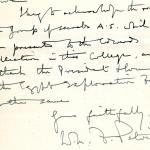 I beg to acknowledge the re
group of scarabs A.S. which
presents to the
collection in this College, an
thank the President Hon.
the Egypt Exploration F
the same.
Yours faithfully
Wm. F. Petri